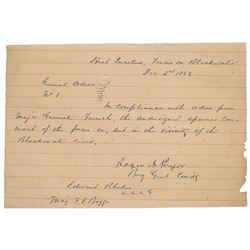 Head Quarters, Forces on Blackwater
Dec 2nd 1862
General Orders
No 1
In compliance with orders from
Major General French, the undersigned assumes com-
mand of the forces on, and in the vicinity of the
Blackwater River.
Roger A. Pryor
Brig Genl Comdg
Edward
A.A.A.G
Maj F. D. Boggs